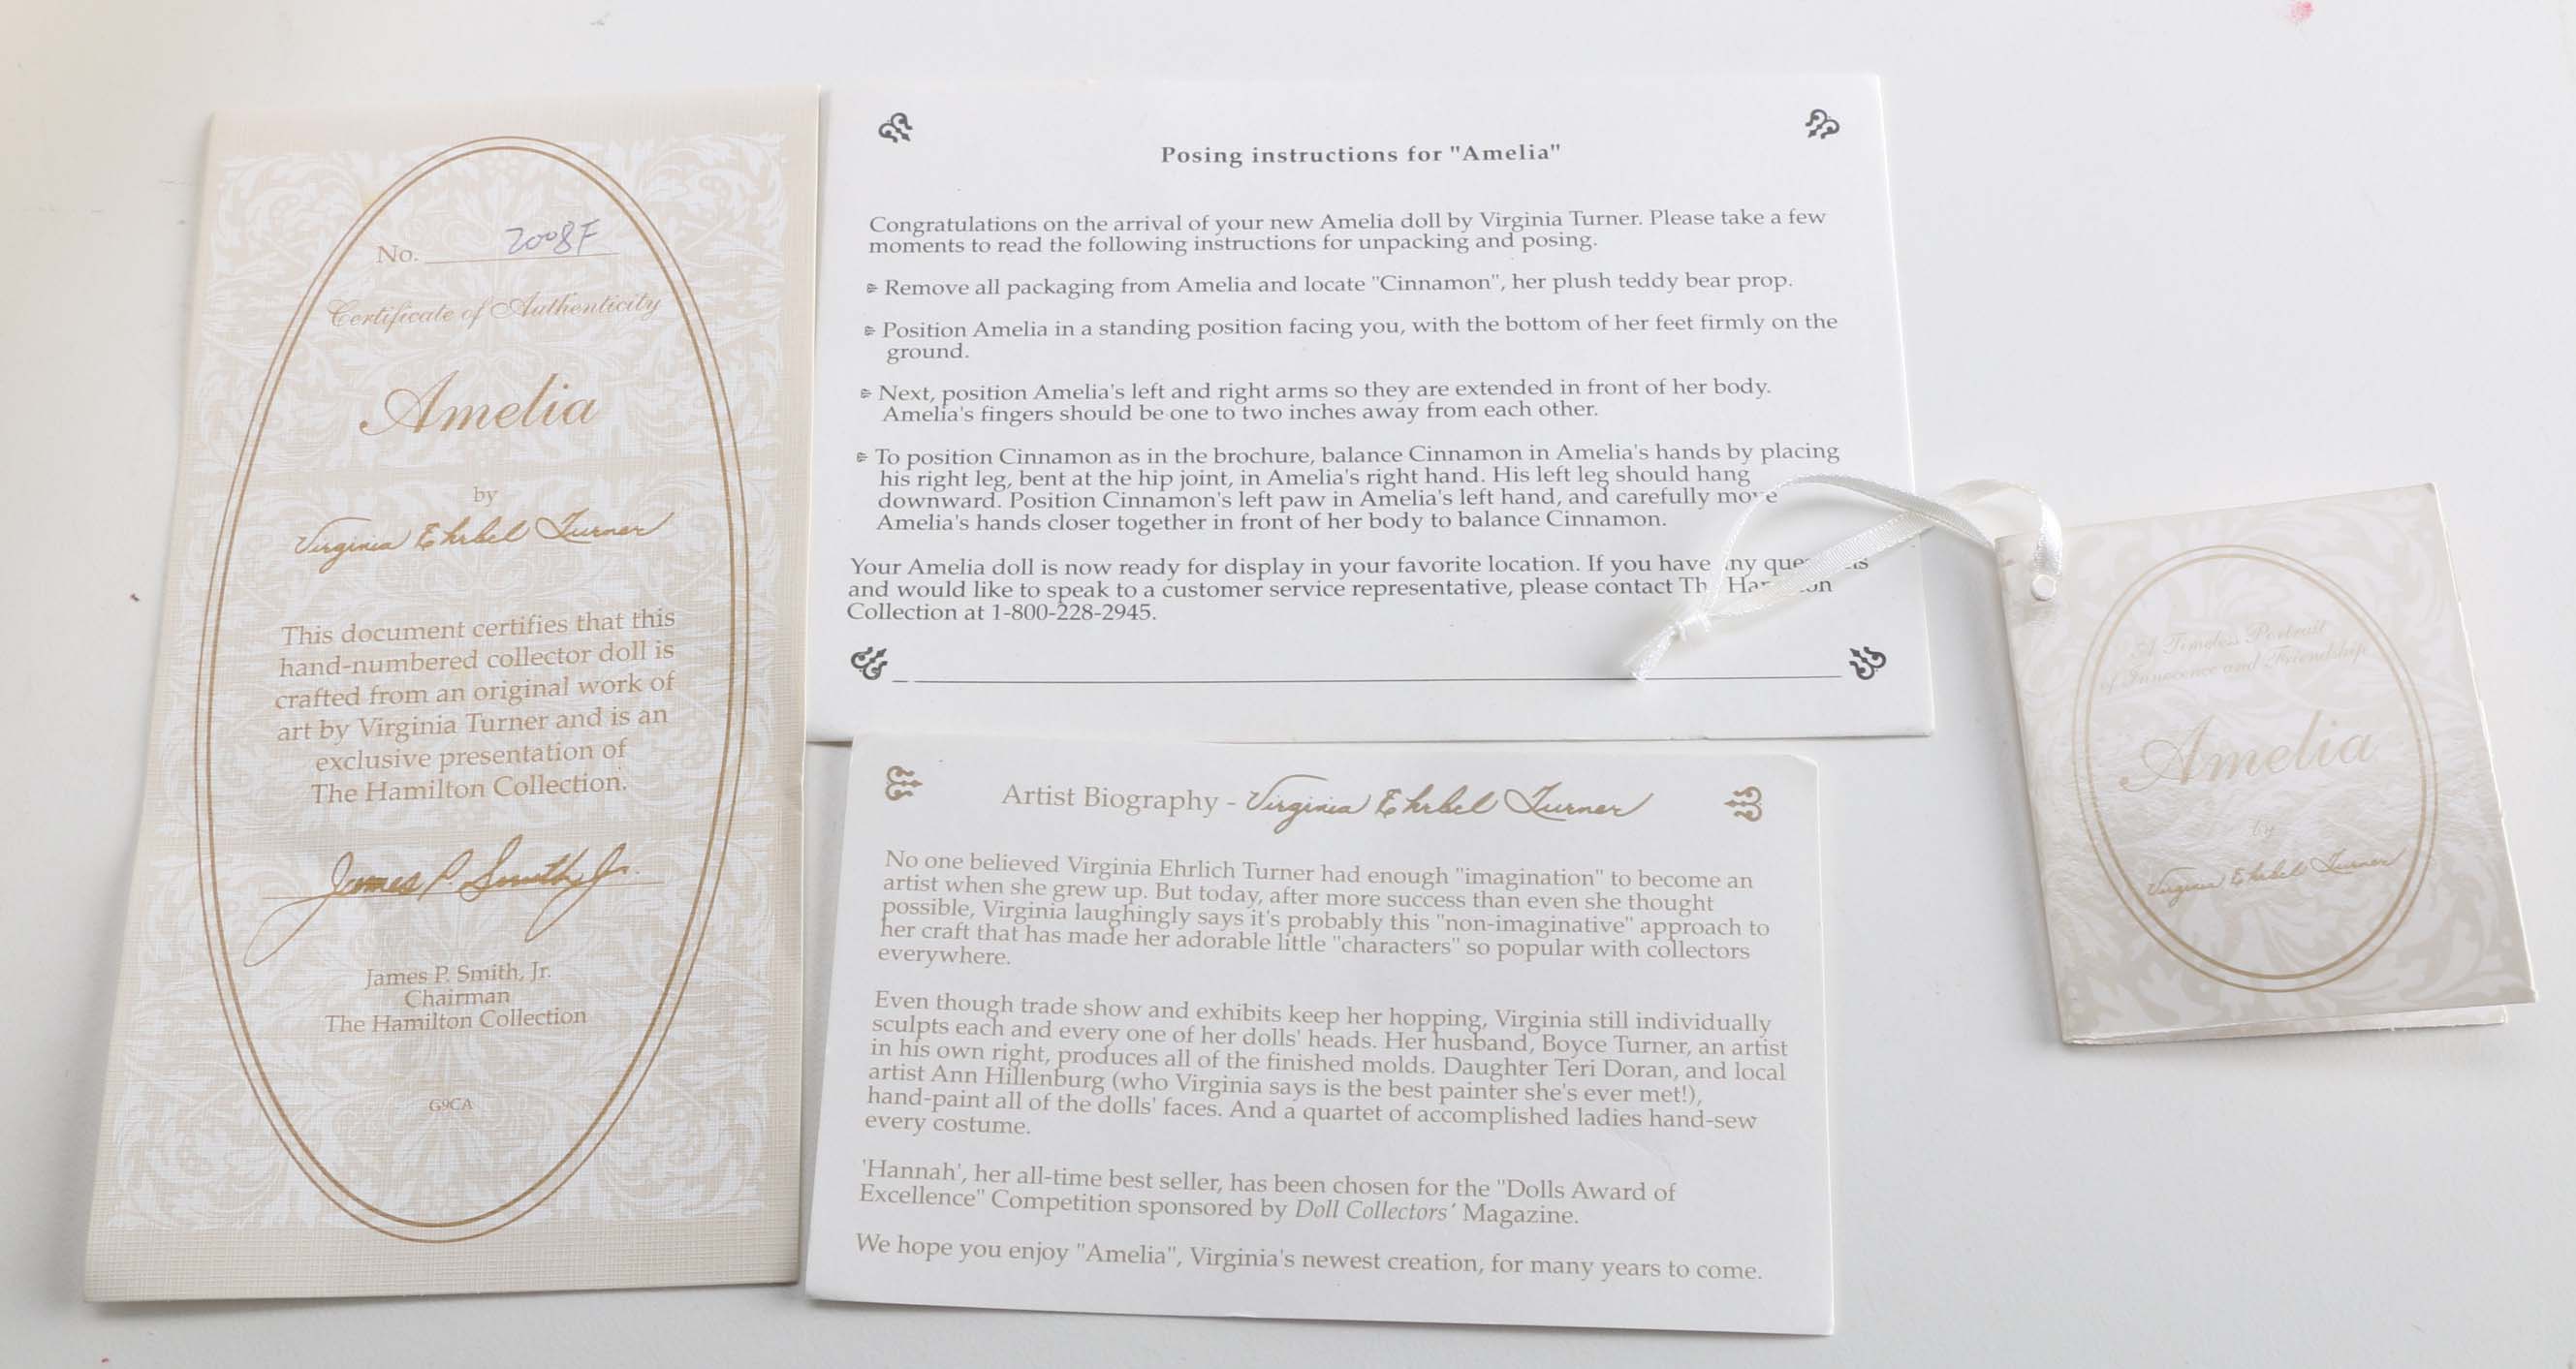 No. 2008F
Certificate of Authenticity
Amelia
by
Virginia Ehrlich Turner
This document certifies that this
hand-numbered collector doll is
crafted from an original work of
art by Virginia Turner and is an
exclusive presentation of
The Hamilton Collection.
James P. Smith, Jr.
James P. Smith, Jr.
Chairman
The Hamilton Collection
G9CA
Posing instructions for "Amelia"
Congratulations on the arrival of your new Amelia doll by Virginia Turner. Please take a few
moments to read the following instructions for unpacking and posing.
Remove all packaging from Amelia and locate "Cinnamon", her plush teddy bear prop.
Position Amelia in a standing position facing you, with the bottom of her feet firmly on the
ground.
Next, position Amelia's left and right arms so they are extended in front of her body.
Amelia's fingers should be one to two inches away from each other.
To position Cinnamon as in the brochure, balance Cinnamon in Amelia's hands by placing
his right leg, bent at the hip joint, in Amelia's right hand. His left leg should hang
downward. Position Cinnamon's left paw in Amelia's left hand, and carefully move
Amelia's hands closer together in front of her body to balance Cinnamon.
Your Amelia doll is now ready for display in your favorite location. If you have any questions
and would like to speak to a customer service representative, please contact The Hamilton
Collection at 1-800-228-2945.
Artist Biography - Virginia Ehrlich Turner
No one believed Virginia Ehrlich Turner had enough "imagination" to become an
artist when she grew up. But today, after more success than even she thought
possible, Virginia laughingly says it's probably this "non-imaginative" approach to
her craft that has made her adorable little "characters" so popular with collectors
everywhere.
Even though trade show and exhibits keep her hopping, Virginia still individually
sculpts each and every one of her dolls' heads. Her husband, Boyce Turner, an artist
in his own right, produces all of the finished molds. Daughter Teri Doran, and local
artist Ann Hillenburg (who Virginia says is the best painter she's ever met!),
hand-paint all of the dolls' faces. And a quartet of accomplished ladies hand-sew
every costume.
'Hannah', her all-time best seller, has been chosen for the "Dolls Award of
Excellence" Competition sponsored by Doll Collectors' Magazine.
We hope you enjoy "Amelia", Virginia's newest creation, for many years to come.
A Timeless Portrait
of Innocence and Friendship
Amelia
by
Virginia Ehrlich Turner